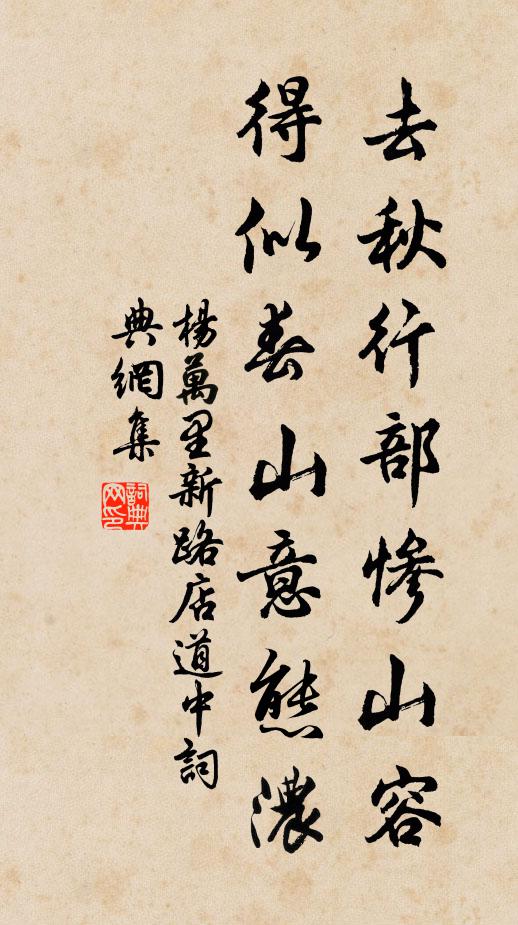 去秋行部慘山容
得似春山意態濃
楊萬里新路店道中詞
典網集
詞典网印